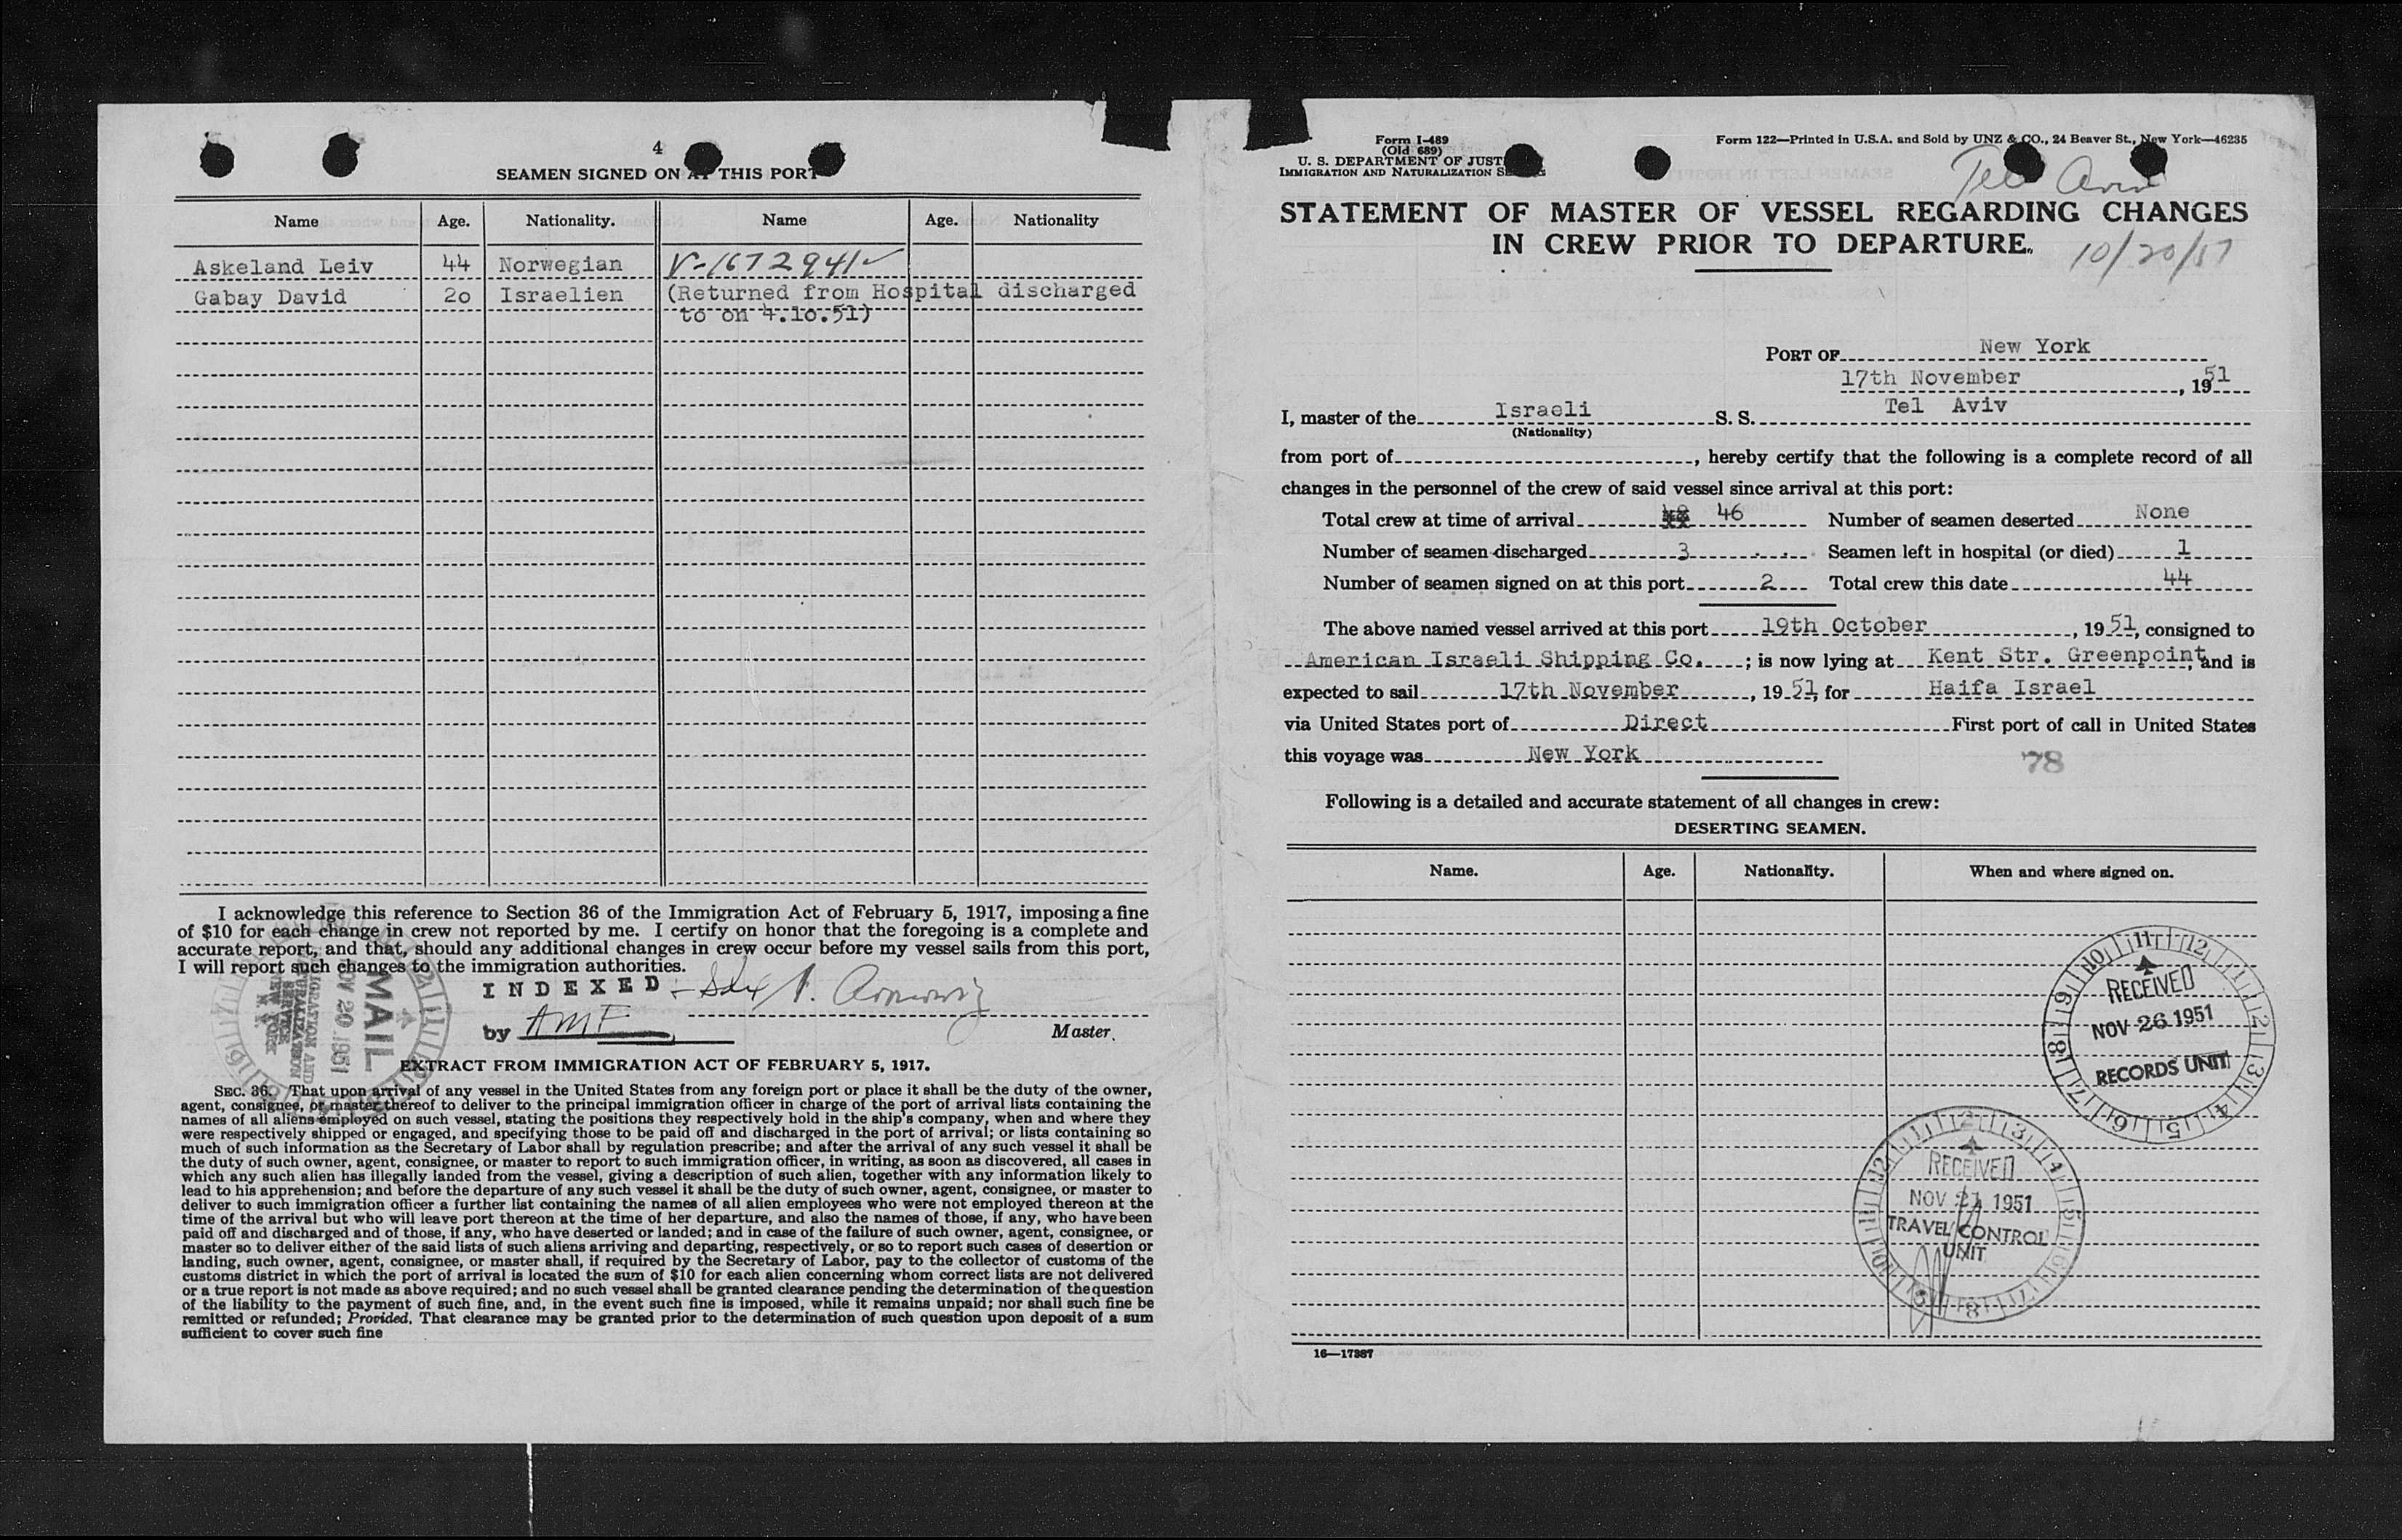 4
SEAMEN SIGNED ON AT THIS PORT
Name Age. Nationality. Name Age. Nationality
Askeland Leiv 44 Norwegian V-1672941✓
Gabay David 20 Israelien (Returned from Hospital discharged
to on 4.10.51)
I acknowledge this reference to Section 36 of the Immigration Act of February 5, 1917, imposing a fine
of $10 for each change in crew not reported by me. I certify on honor that the foregoing is a complete and
accurate report, and that, should any additional changes in crew occur before my vessel sails from this port,
I will report such changes to the immigration authorities.
INDEXED
by AMF Master.
MAIL
NOV 20 1951
IMMIGRATION AND
NATURALIZATION
SERVICE
NEW YORK
EXTRACT FROM IMMIGRATION ACT OF FEBRUARY 5, 1917.
SEC. 36. That upon arrival of any vessel in the United States from any foreign port or place it shall be the duty of the owner,
agent, consignee, or master thereof to deliver to the principal immigration officer in charge of the port of arrival lists containing the
names of all aliens employed on such vessel, stating the positions they respectively hold in the ship's company, when and where they
were respectively shipped or engaged, and specifying those to be paid off and discharged in the port of arrival; or lists containing so
much of such information as the Secretary of Labor shall by regulation prescribe; and after the arrival of any such vessel it shall be
the duty of such owner, agent, consignee, or master to report to such immigration officer, in writing, as soon as discovered, all cases in
which any such alien has illegally landed from the vessel, giving a description of such alien, together with any information likely to
lead to his apprehension; and before the departure of any such vessel it shall be the duty of such owner, agent, consignee, or master to
deliver to such immigration officer a further list containing the names of all alien employees who were not employed thereon at the
time of the arrival but who will leave port thereon at the time of her departure, and also the names of those, if any, who have been
paid off and discharged and of those, if any, who have deserted or landed; and in case of the failure of such owner, agent, consignee, or
master so to deliver either of the said lists of such aliens arriving and departing, respectively, or so to report such cases of desertion or
landing, such owner, agent, consignee, or master shall, if required by the Secretary of Labor, pay to the collector of customs of the
customs district in which the port of arrival is located the sum of $10 for each alien concerning whom correct lists are not delivered
or a true report is not made as above required; and no such vessel shall be granted clearance pending the determination of the question
of the liability to the payment of such fine, and, in the event such fine is imposed, while it remains unpaid; nor shall such fine be
remitted or refunded; Provided, That clearance may be granted prior to the determination of such question upon deposit of a sum
sufficient to cover such fine
Form I-489
(Old 689)
U. S. DEPARTMENT OF JUST
IMMIGRATION AND NATURALIZATION S
Form 122—Printed in U.S.A. and Sold by UNZ & CO., 24 Beaver St., New York—46235
Tel Aviv
STATEMENT OF MASTER OF VESSEL REGARDING CHANGES
IN CREW PRIOR TO DEPARTURE.
10/20/51
PORT OF New York
17th November, 1951
I, master of the Israeli S. S. Tel Aviv
(Nationality)
from port of, hereby certify that the following is a complete record of all
changes in the personnel of the crew of said vessel since arrival at this port:
Total crew at time of arrival 46 Number of seamen deserted None
Number of seamen discharged 3 Seamen left in hospital (or died) 1
Number of seamen signed on at this port 2 Total crew this date 44
The above named vessel arrived at this port 19th October, 1951, consigned to
American Israeli Shipping Co.; is now lying at Kent Str. Greenpoint, and is
expected to sail 17th November, 1951, for Haifa Israel
via United States port of Direct First port of call in United States
this voyage was New York
78
Following is a detailed and accurate statement of all changes in crew:
DESERTING SEAMEN.
Name. Age. Nationality. When and where signed on.
RECEIVED
NOV 26 1951
RECORDS UNIT
RECEIVED
NOV 21 1951
TRAVEL CONTROL
UNIT
16—17387